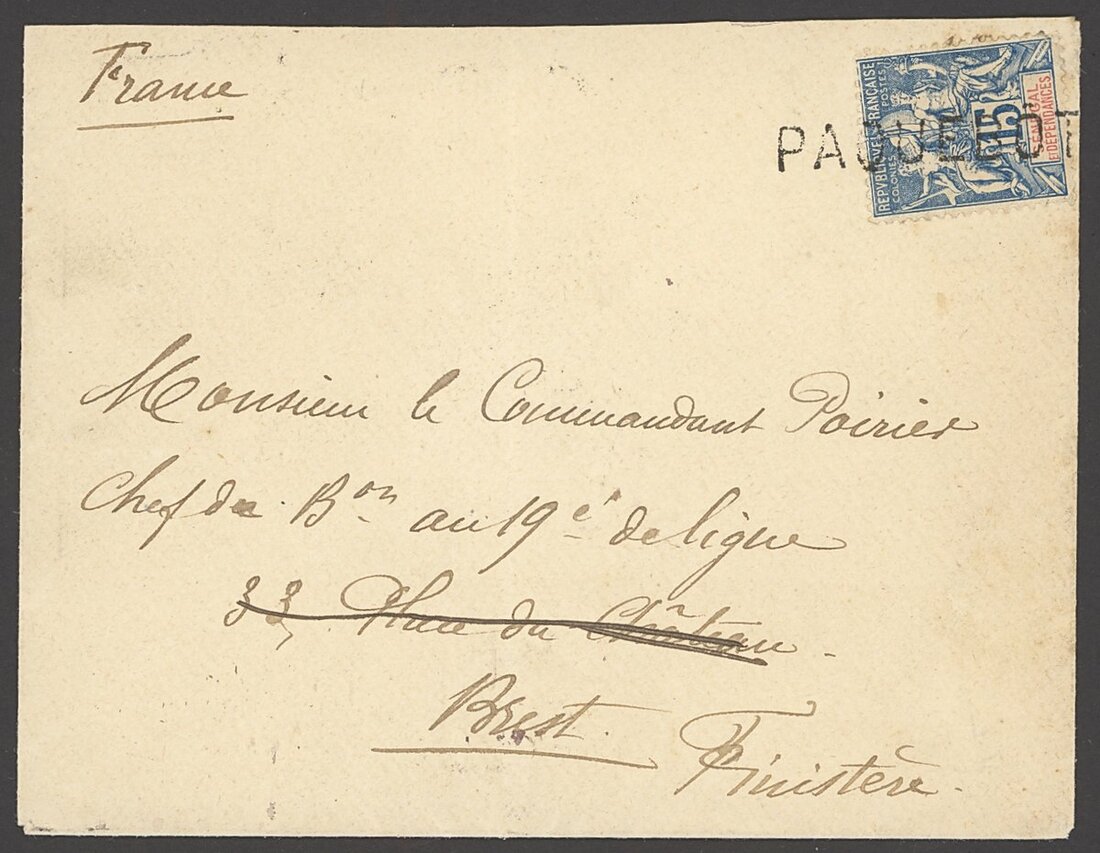 France
REPVBLIQVE FRANÇAISE
COLONIES POSTES
15
SENEGAL
ET DEPENDANCES
PAQUEBOT
Monsieur le Commandant Poirier
Chef de Bon au 19e de ligne
33, Place du Château
Brest. Finistère.